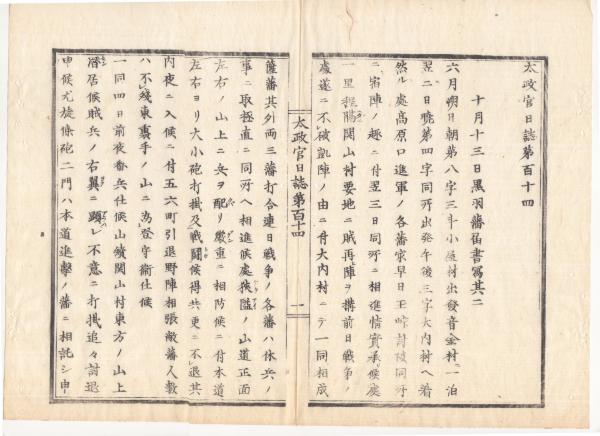 太政官日誌第百十四
十月十三日黒羽藩届書寫其二
六月朔日朝第八字三斗小屋村出發音金村ニ一泊
翌二日曉第四字同所出発午後三字大内村ヘ着
然ル處高原口進軍ノ各藩家早日王峠討破同所
ニ宿陣ノ趣ニ付翌三日同所ニ相進情實承候處
一里程隔関山村要地ニ賊再陣ヲ搆前日戦争ノ
處遂ニ不被凱陣ノ由ニ付大内村ニテ一同相成
太政官日誌第百十四
一
薩藩其外両三藩打合連日戦争ノ各藩ハ休兵ノ
事ニ取極直ニ同所ヘ相進候處狭隘ノ山道正面
左右ノ山上ニ兵ヲ配リ嚴重ニ相防候ニ付本道
左右ヨリ大小砲打掛及戦闘候得共更ニ不退其
内夜ニ入候ニ付五六町引退野陣相張敵藩人数
ハ不残東裏手ノ山ニ為登守衛仕候
一同四日前夜番兵仕候山續関山村東方ノ山上
潜居候賊兵ノ右翼ニ顕レ不意ニ打掛追々討退
申候尤旋條砲二門ハ本道進撃ノ藩ニ相託シ申